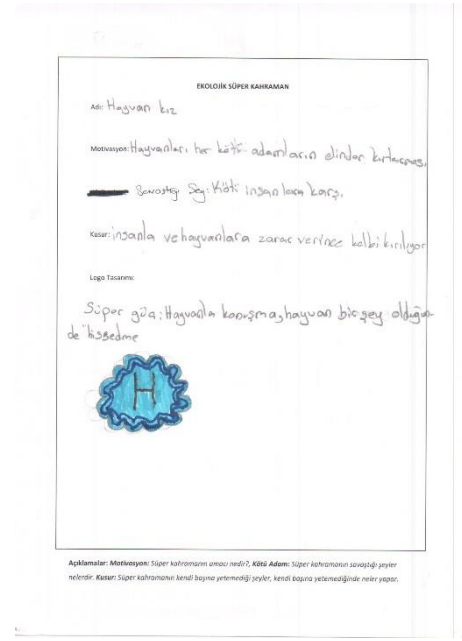 EKOLOJİK SÜPER KAHRAMAN
Adı: Hayvan kız
Motivasyon: Hayvanları her kötü adamların elinden kurtarmas,
Savaştığı Şey: Kötü insanlara karşı.
Kusur: insanla ve hayvanlara zarar verince kalbi kırılıyor
Logo Tasarımı:
Süper güç: Hayvanla konuşma, hayvan bir şey olduğun-
de hissedme
H
Açıklamalar: Motivasyon: Süper kahramanın amacı nedir?, Kötü Adam: Süper kahramanın savaştığı şeyler
nelerdir. Kusur: Süper kahramanın kendi başına yetemediği şeyler, kendi başına yetemediğinde neler yapar.